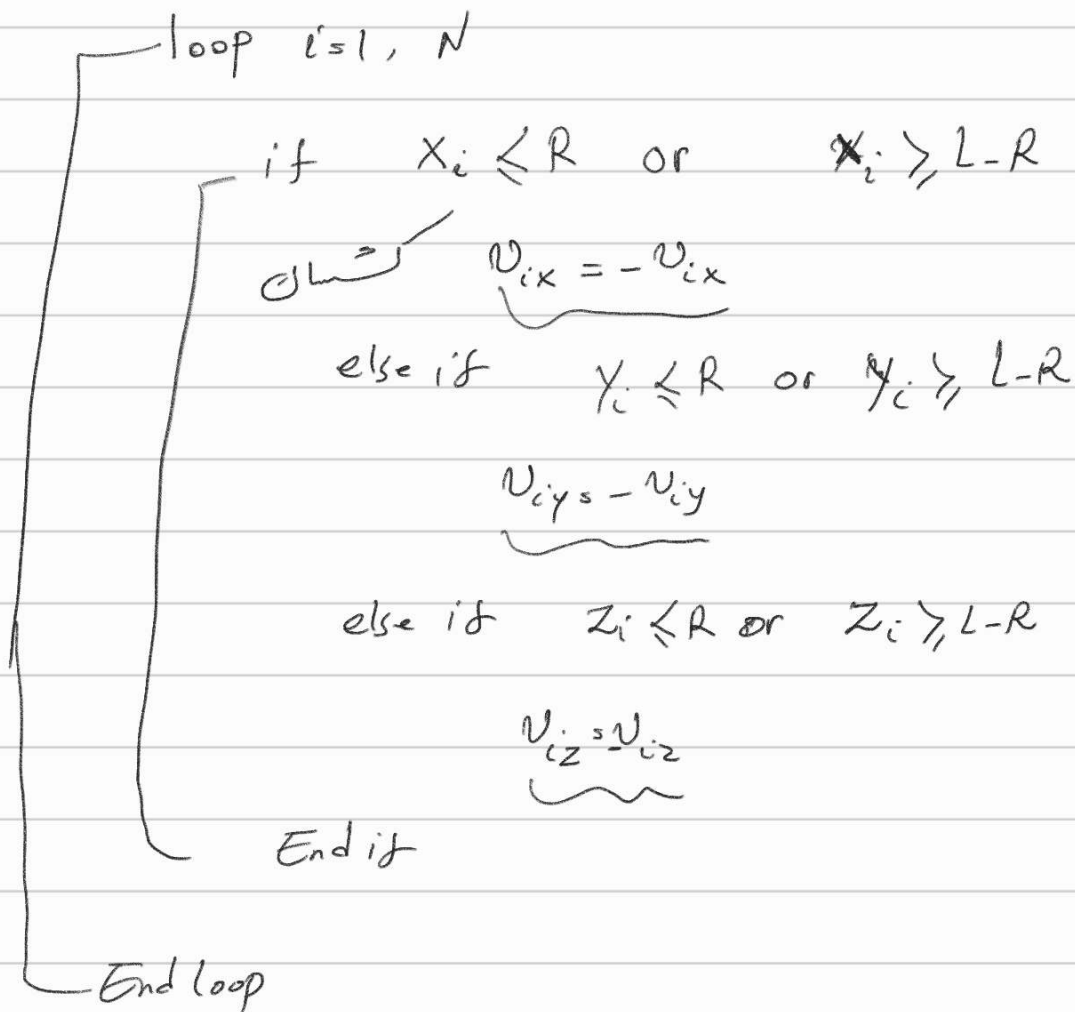 loop i=1, N
if Xi ≤ R or Xi ≥ L-R
vix = -vix
else if Yi ≤ R or Yi ≥ L-R
viy = -viy
else if Zi ≤ R or Zi ≥ L-R
viz = -viz
End if
End loop